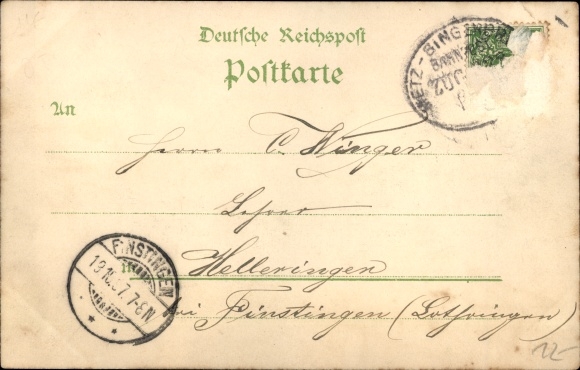 Deutsche Reichspost
Postkarte
METZ-BINGERBR
BAHNPOST
ZUG
An
Herrn C. Winger
Lehrer
Helleringen
bei Finstingen (Lothringen)
FINSTINGEN
19 10 97 7-8N
12-